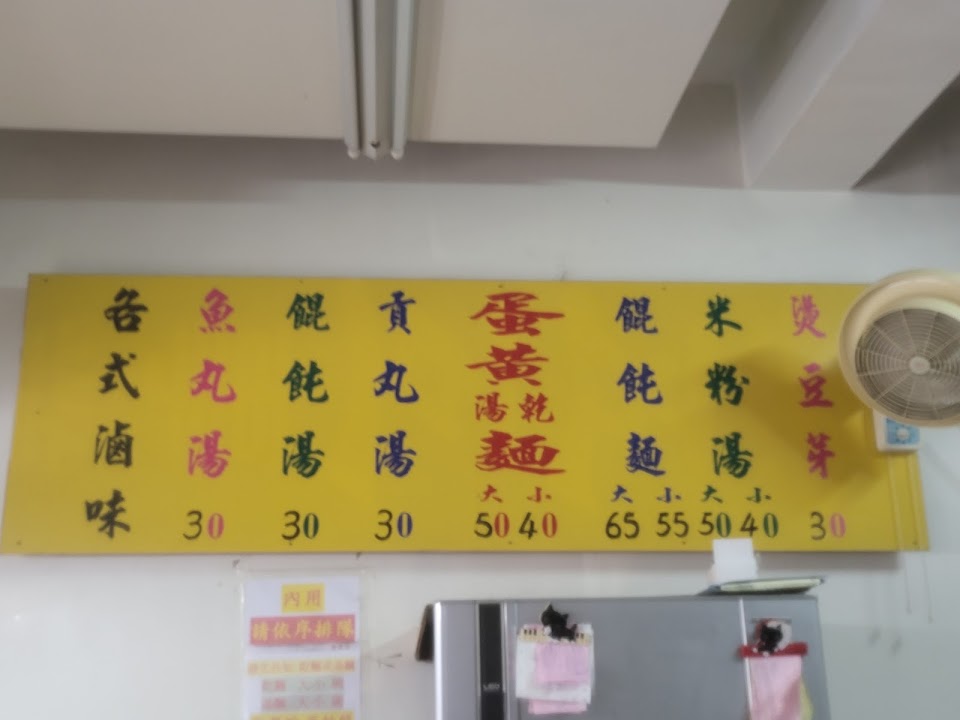 燙豆芽 30
米粉湯 大 50 小 40
餛飩麵 大 65 小 55
蛋黃湯乾麵 大 50 小 40
貢丸湯 30
餛飩湯 30
魚丸湯 30
各式滷味
內用
請依序排隊